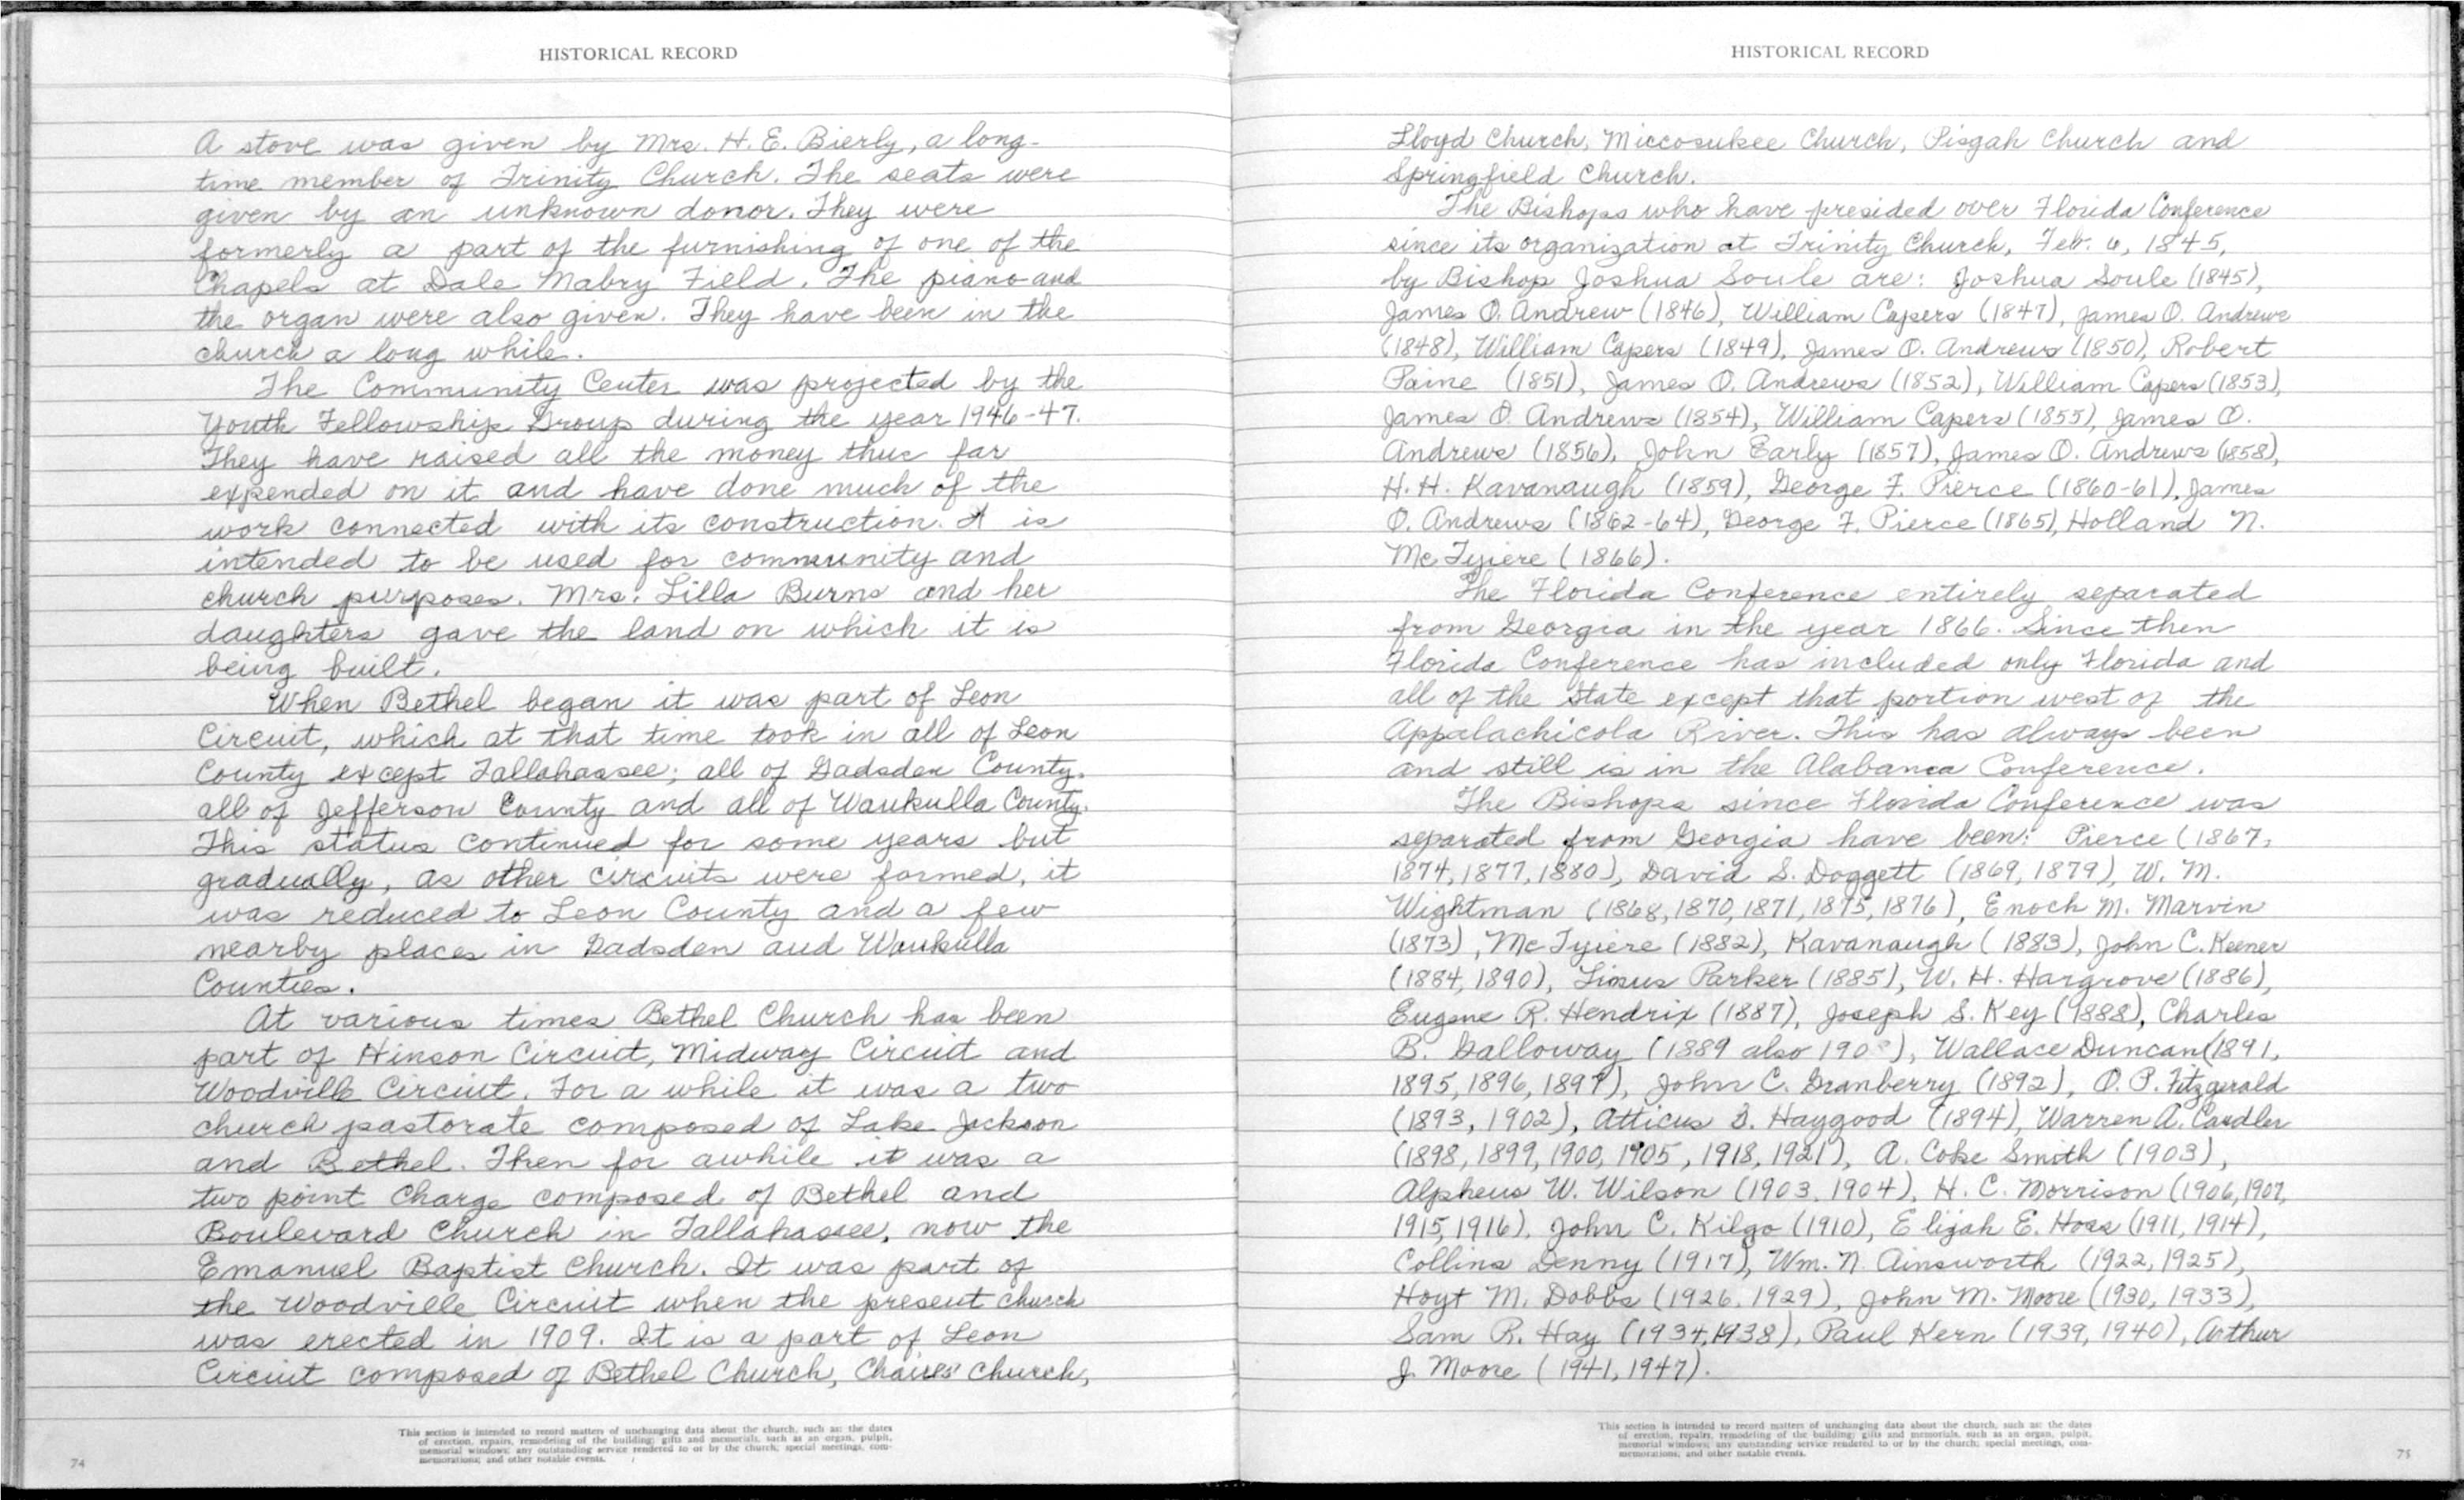 HISTORICAL RECORD
A stove was given by Mrs. H. E. Bierly, a long-
time member of Trinity Church. The seats were
given by an unknown donor. They were
formerly a part of the furnishing of one of the
Chapels at Dale Mabry Field. The piano and
the organ were also given. They have been in the
church a long while.
The Community Center was projected by the
Youth Fellowship Group during the year 1946-47.
They have raised all the money thus far
expended on it and have done much of the
work connected with its construction. It is
intended to be used for community and
church purposes. Mrs. Lilla Burns and her
daughters gave the land on which it is
being built.
When Bethel began it was part of Leon
Circuit, which at that time took in all of Leon
County except Tallahassee; all of Gadsden County,
all of Jefferson County and all of Waukulla County.
This status continued for some years but
gradually, as other circuits were formed, it
was reduced to Leon County and a few
nearby places in Gadsden and Waukulla
Counties.
At various times Bethel Church has been
part of Hinson Circuit, Midway Circuit and
Woodville Circuit. For a while it was a two
church pastorate composed of Lake Jackson
and Bethel. Then for awhile it was a
two point Charge composed of Bethel and
Boulevard Church in Tallahassee, now the
Emanuel Baptist Church. It was part of
the Woodville Circuit when the present church
was erected in 1909. It is a part of Leon
Circuit composed of Bethel Church, Chaires Church,
This section is intended to record matters of unchanging data about the church, such as: the dates
of erection, repairs, remodeling of the building; gifts and memorials, such as an organ, pulpit,
memorial windows; any outstanding service rendered to or by the church; special meetings, com-
memorations; and other notable events.
74
HISTORICAL RECORD
Lloyd Church, Miccosukee Church, Pisgah Church and
Springfield Church.
The Bishops who have presided over Florida Conference
since its organization at Trinity Church, Feb. 6, 1845,
by Bishop Joshua Soule are: Joshua Soule (1845),
James O. Andrew (1846), William Capers (1847), James O. Andrews
(1848), William Capers (1849), James O. Andrews (1850), Robert
Paine (1851), James O. Andrews (1852), William Capers (1853),
James O. Andrews (1854), William Capers (1855), James O.
Andrews (1856), John Early (1857), James O. Andrews (1858),
H. H. Kavanaugh (1859), George F. Pierce (1860-61), James
O. Andrews (1862-64), George F. Pierce (1865), Holland N.
McTyiere (1866).
The Florida Conference entirely separated
from Georgia in the year 1866. Since then
Florida Conference has included only Florida and
all of the State except that portion west of the
Appalachicola River. This has always been
and still is in the Alabama Conference.
The Bishops since Florida Conference was
separated from Georgia have been: Pierce (1867,
1874, 1877, 1880), David S. Doggett (1869, 1879), W. M.
Wightman (1868, 1870, 1871, 1875, 1876), Enoch M. Marvin
(1873), McTyiere (1882), Kavanaugh (1883), John C. Keener
(1884, 1890), Linus Parker (1885), W. H. Hargrove (1886),
Eugene R. Hendrix (1887), Joseph S. Key (1888), Charles
B. Galloway (1889 also ), Wallace Duncan (1891,
1895, 1896, 1897), John C. Granberry (1892), O. P. Fitzgerald
(1893, 1902), Atticus G. Haygood (1894), Warren A. Candler
(1898, 1899, 1900, 1905, 1918, 1921), A. Coke Smith (1903),
Alpheus W. Wilson (1903, 1904), H. C. Morrison (1906, 1907,
1915, 1916), John C. Kilgo (1910), Elijah E. Hoss (1911, 1914),
Collins Denny (1917), Wm. N. Ainsworth (1922, 1925),
Hoyt M. Dobbs (1926, 1929), John M. Moore (1930, 1933),
Sam R. Hay (1934, 1938), Paul Kern (1939, 1940), Arthur
J. Moore (1941, 1947).
This section is intended to record matters of unchanging data about the church, such as: the dates
of erection, repairs, remodeling of the building; gifts and memorials, such as an organ, pulpit,
memorial windows; any outstanding service rendered to or by the church; special meetings, com-
memorations; and other notable events.
75